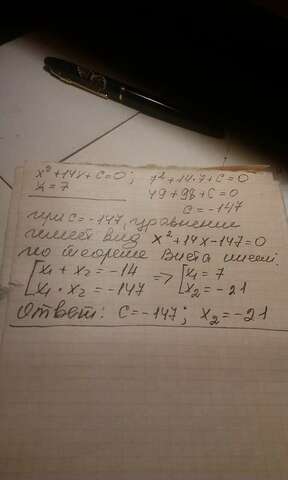 x²+14x+c=0; 7²+14·7+c=0
x₁=7 49+98+c=0
c=-147
при c=-147, уравнение
имеет вид x²+14x-147=0
по теореме Виета имеем:
[x₁+x₂=-14 => [x₁=7
[x₁·x₂=-147 [x₂=-21
Ответ: c=-147; x₂=-21